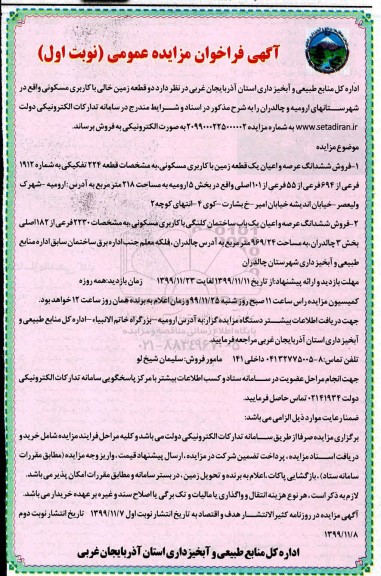 آگهی فراخوان مزایده عمومی (نوبت اول)
اداره کل منابع طبیعی و آبخیزداری استان آذربایجان غربی در نظر دارد دو قطعه زمین خالی با کاربری مسکونی واقع در
شهرستانهای ارومیه و چالدران را به شرح مذکور در اسناد و شرایط مندرج در سامانه تدارکات الکترونیکی دولت
www.setadiran.ir به شماره مزایده ۲۰۹۹۰۰۰۲۲۵۰۰۰۰۰۲ به صورت الکترونیکی به فروش برساند.
موضوع مزایده
۱-فروش ششدانگ عرصه و اعیان یک قطعه زمین با کاربری مسکونی،به مشخصات قطعه ۲۲۴ تفکیکی به شماره ۱۹۱۲
فرعی از ۶۹۴ فرعی از ۵۵ فرعی از ۱۰۱ اصلی واقع در بخش ۵ ارومیه به مساحت ۲۱۸ متر مربع به آدرس :ارومیه -شهرک
ولیعصر -خیابان اندیشه خیابان امیر -خ بشارت -کوی ۴-انتهای کوچه ۲
۲-فروش ششدانگ عرصه و اعیان یک باب ساختمان کلنگی با کاربری مسکونی ،به مشخصات ۲۲۳۰ فرعی از ۱۸۲ اصلی
بخش ۳ چالدران،به مساحت ۹۶۹/۲۴ متر مربع به آدرس چالدران ، فلکه معلم جنب اداره برق ساختمان سابق اداره منابع
طبیعی و آبخیزداری شهرستان چالدران
مهلت بازدید و ارائه پیشنهاد:از تاریخ ۱۳۹۹/۱۱/۱۱ لغایت ۱۳۹۹/۱۱/۲۳ زمان بازدید:همه روزه
کمیسیون مزایده راس ساعت ۱۱ صبح روز شنبه ۹۹/۱۱/۲۵ و زمان اعلام به برنده همان روز ساعت ۱۲ خواهد بود.
جهت دریافت اطلاعات بیشتر دستگاه مزایده گزار:به آدرس ارومیه-بزرگراه خاتم الانبیاء-اداره کل منابع طبیعی و
آبخیزداری استان آذربایجان غربی مراجعه فرمایید
تلفن تماس:۸-۰۴۱۳۲۷۷۵۰۰۵ داخلی ۱۴۱ مامور فروش:سلیمان شیخ لو
جهت انجام مراحل عضویت در سامانه ستاد و کسب اطلاعات بیشتر با مرکز پاسخگویی سامانه تدارکات الکترونیکی
دولت ۰۲۱۴۱۹۳۴ تماس حاصل فرمایید.
ضمنا رعایت موارد ذیل الزامی می باشد:
برگزاری مزایده صرفا از طریق سامانه تدارکات الکترونیکی دولت می باشد و کلیه مراحل فرایند مزایده شامل خرید و
دریافت اسناد مزایده ، پرداخت تضمین شرکت در مزایده ، ارسال پیشنهاد قیمت ، واریز وجه مزایده (مطابق مقررات
سامانه ستاد) ، بازگشایی پاکات ،اعلام به برنده و تحویل زمین ، در بستر سامانه و مطابق مقررات امکان پذیر می باشد.
لازم به ذکر است ، هر نوع هزینه انتقال و واگذاری یا مالیات و تک برگی یا اصلاح سند و غیره بر عهده خریدار می باشد.
آگهی مزایده در روزنامه کثیرالانتشار هدف و اقتصاد به تاریخ انتشار نوبت اول ۱۳۹۹/۱۱/۷ تاریخ انتشار نوبت دوم
۱۳۹۹/۱۱/۸
اداره کل منابع طبیعی و آبخیزداری استان آذربایجان غربی